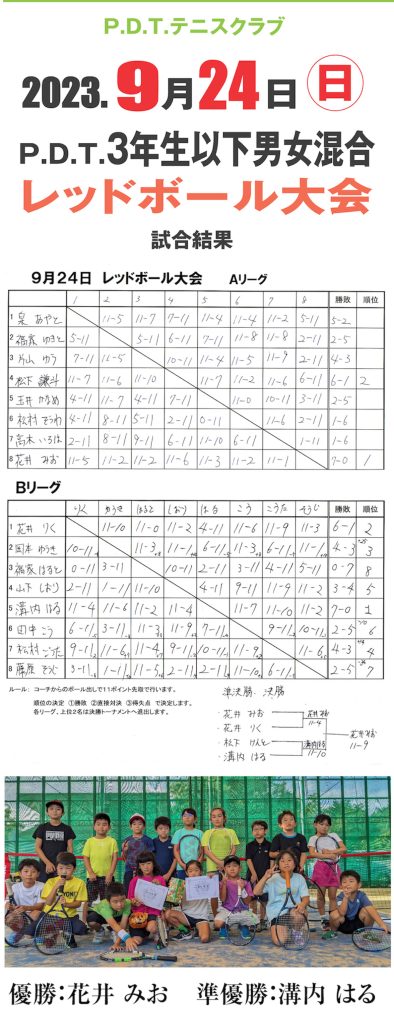 P.D.T.テニスクラブ
2023.9月24日㊐
P.D.T.3年生以下男女混合
レッドボール大会
試合結果
9月24日 レッドボール大会 Aリーグ
1 2 3 4 5 6 7 8 勝敗 順位
1 泉 あやと 11-5 11-7 7-11 11-4 11-4 11-2 5-11 5-2
2 福家 ゆきと 5-11 5-11 6-11 7-11 11-8 11-8 2-11 2-5
3 片山 ゆう 7-11 11-5 10-11 11-4 11-5 11-9 2-11 4-3
4 松下 謙斗 11-7 11-6 11-10 11-7 11-2 11-6 6-11 6-1 2
5 玉井 かなめ 4-11 11-7 4-11 7-11 11-0 10-11 3-11 2-5
6 松村 そうわ 4-11 8-11 5-11 2-11 0-11 11-6 2-11 1-6
7 高木 いろは 2-11 8-11 9-11 6-11 11-10 6-11 1-11 1-6
8 花井 みお 11-5 11-2 11-2 11-6 11-3 11-2 11-1 7-0 1
Bリーグ
りく ゆうき はると しおり はる こう こうた そうじ 勝敗 順位
1 花井 りく 11-10 11-0 11-2 4-11 11-6 11-9 11-3 6-1 2
2 岡本 ゆうき 10-11 11-3 11-1 6-11 11-3 6-11 11-1 4-3 3
3 福家 はると 0-11 3-11 10-11 2-11 3-11 4-11 5-11 0-7 8
4 山下 しおり 2-11 1-11 11-10 4-11 9-11 11-9 11-2 3-4 5
5 溝内 はる 11-4 11-6 11-2 11-4 11-7 11-10 11-2 7-0 1
6 田中 こう 6-11 3-11 11-3 11-9 7-11 9-11 10-11 2-5 6
7 松村 こうた 9-11 11-6 11-4 9-11 10-11 11-9 11-6 4-3 4
8 藤原 そうじ 3-11 1-11 11-5 2-11 2-11 11-10 6-11 2-5 7
ルール： コーチからのボール出しで11ポイント先取で行います。
順位の決定 ①勝敗 ②直接対決 ③得失点 で決定します。
各リーグ、上位2名は決勝トーナメントへ進出します。
準決勝 決勝
・花井 みお
花井 みお
11-4
・花井 りく
花井 みお
11-9
・松下 けんと
溝内 はる
11-10
・溝内 はる
優勝：花井 みお 準優勝：溝内 はる